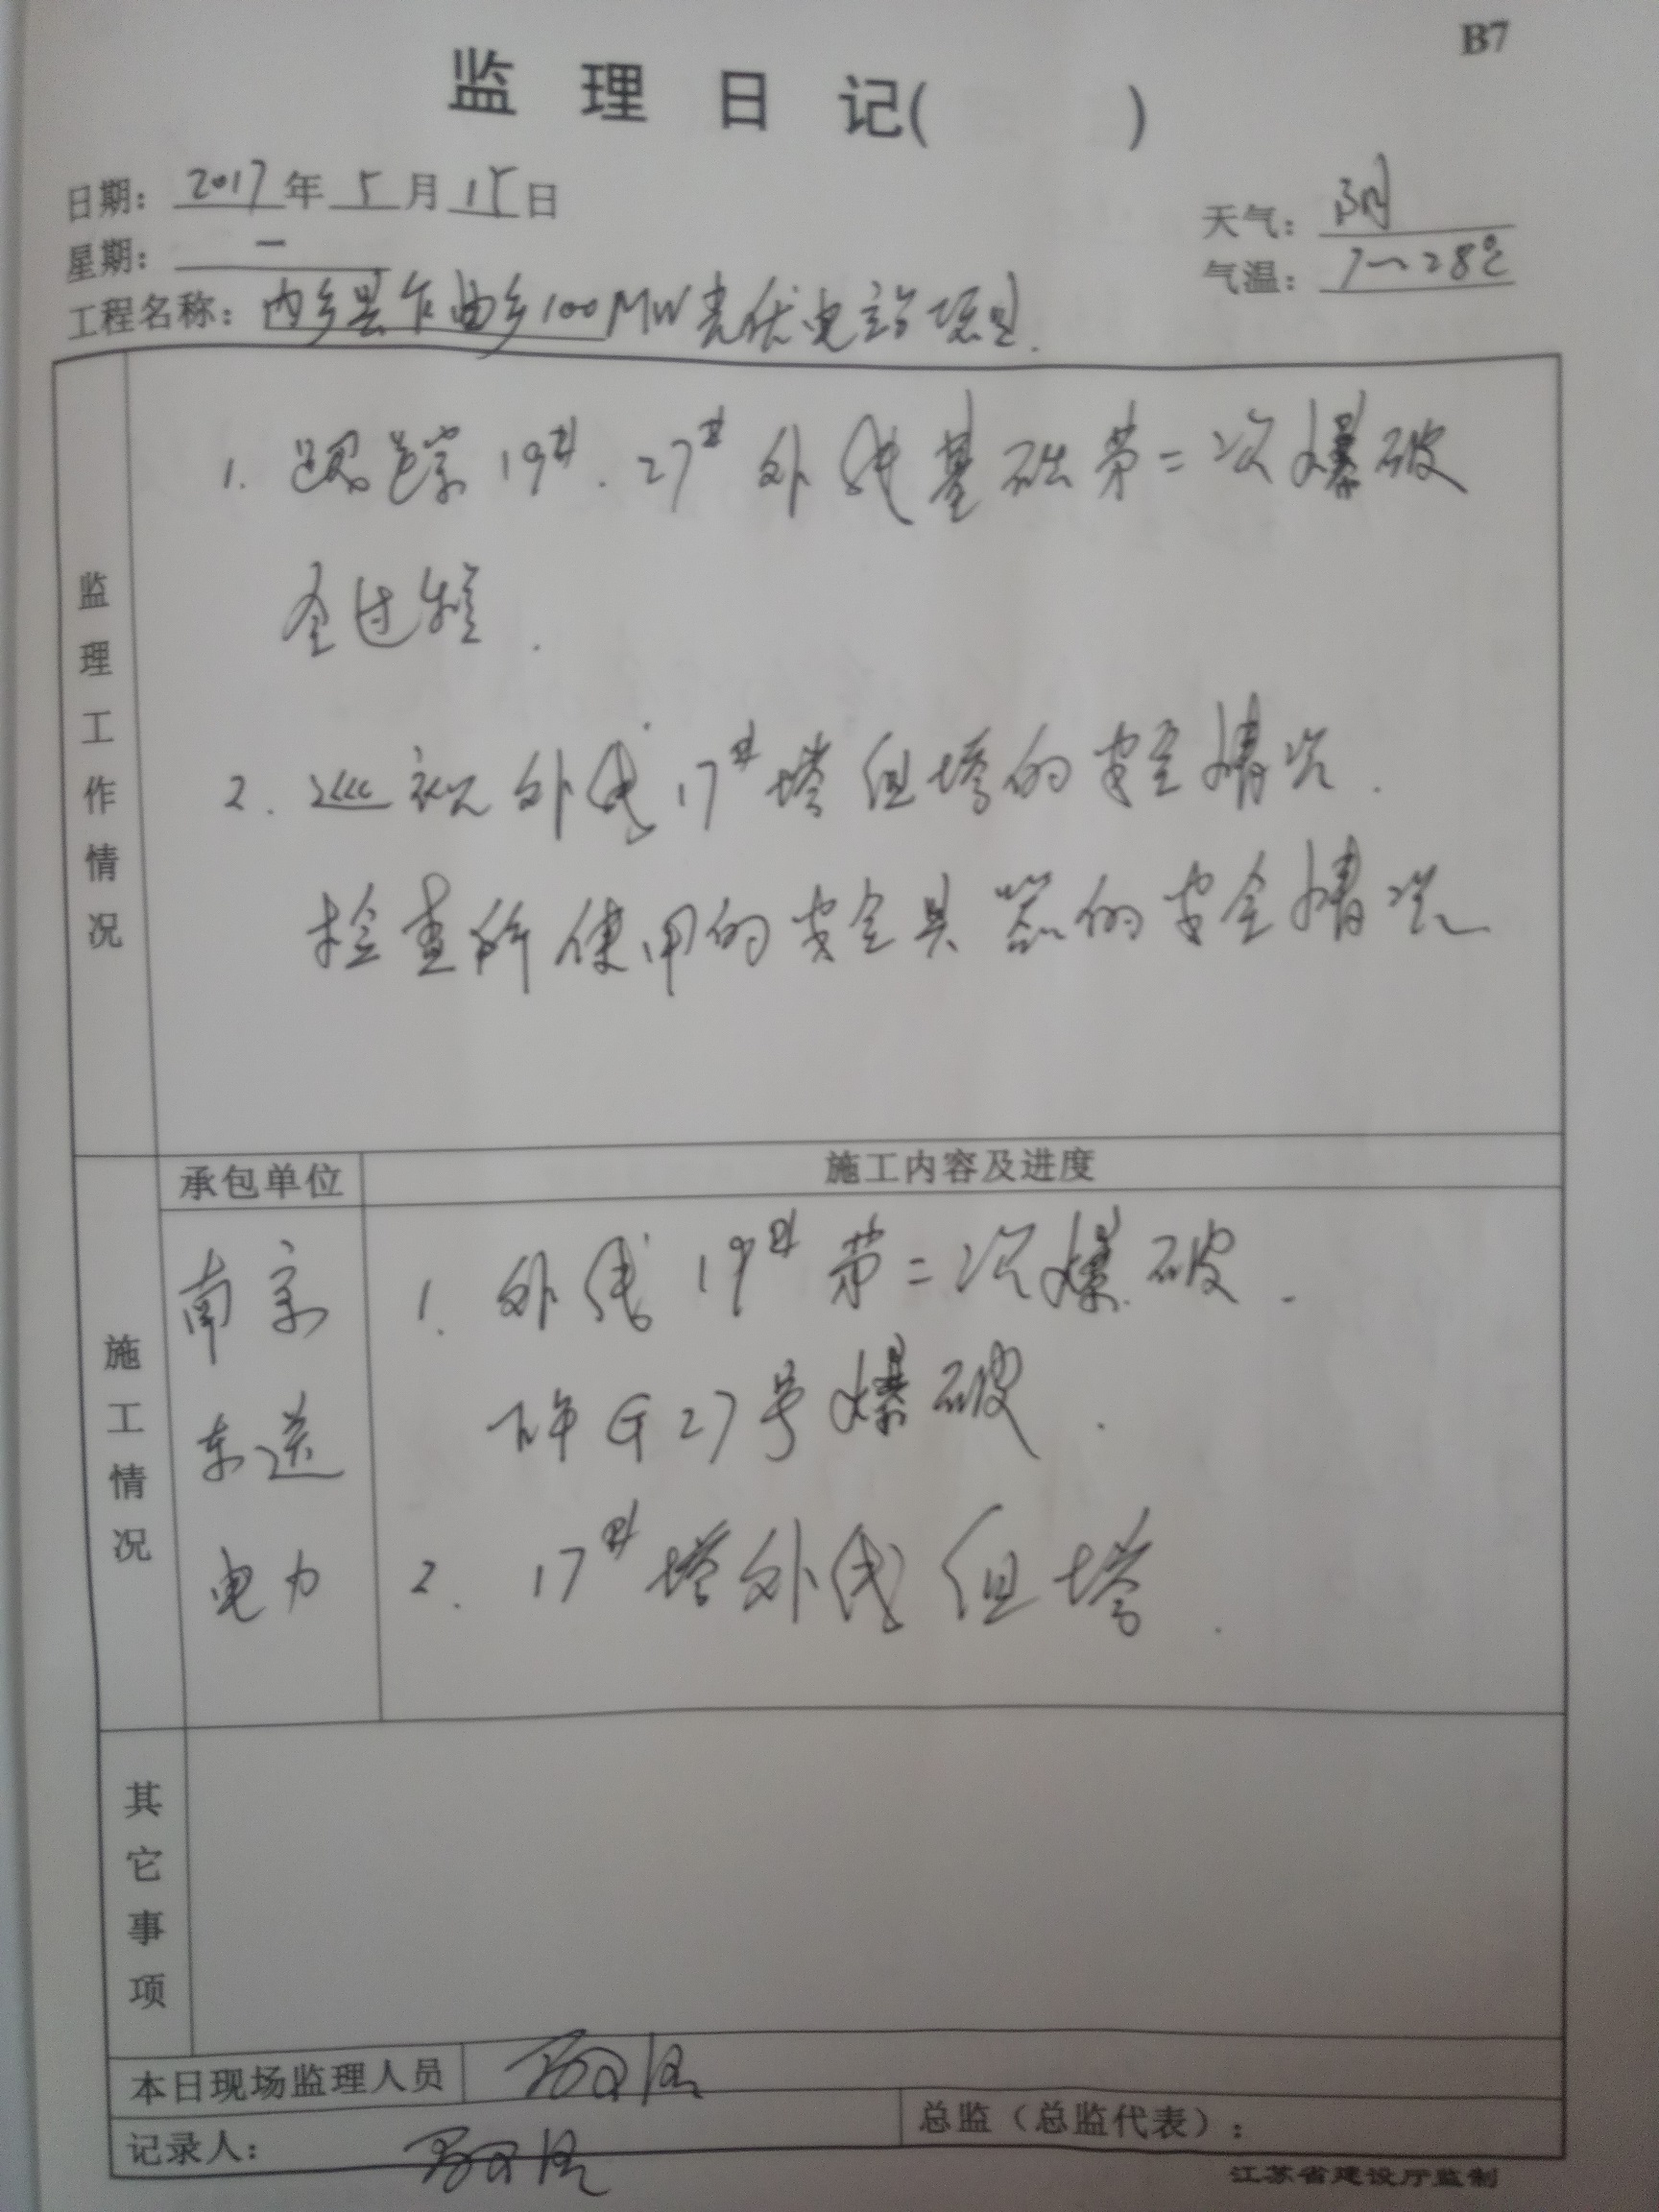 B7
监理日记( )
日期: 2017年5月15日
天气: 阴
星期: 一
气温: 7~28℃
工程名称: 内乡县乍曲乡100MW光伏电站项目.
监理工作情况
1. 跟踪19#.27#外线基础第二次爆破
全过程.
2. 巡视外线17#塔组塔的安全情况.
检查所使用的安全具器的安全情况
施工情况
承包单位
施工内容及进度
南京
东送
电力
1. 外线19#第二次爆破.
G27号爆破.
2. 17#塔外线组塔.
其它事项
本日现场监理人员
记录人:
总监(总监代表):
江苏省建设厅监制